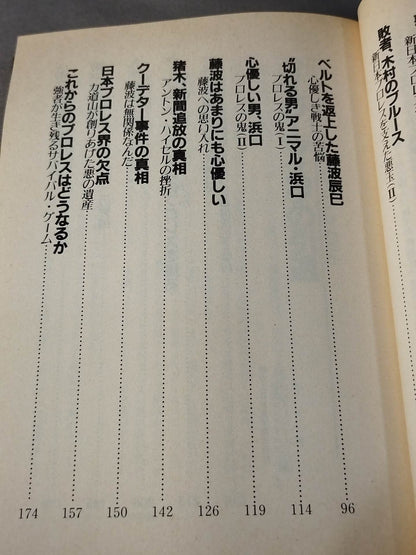 敗者、木村のブルース
新日本プロレスを支えた悪玉(Ⅱ)
ベルトを返上した藤波辰巳
心優しき戦士の苦悩
96
“切れる男”アニマル・浜口
プロレスの鬼(Ⅰ)
114
心優しい男、浜口
プロレスの鬼(Ⅱ)
119
藤波はあまりにも心優しい
藤波への思い入れ
126
猪木、新間追放の真相
アントン・ハイセルの挫折
142
クーデター事件の真相
藤波は無関係なんだ
150
日本プロレス界の欠点
力道山が創りあげた悪の遺産
157
これからのプロレスはどうなるか
強者が生き残るサバイバル・ゲーム
174